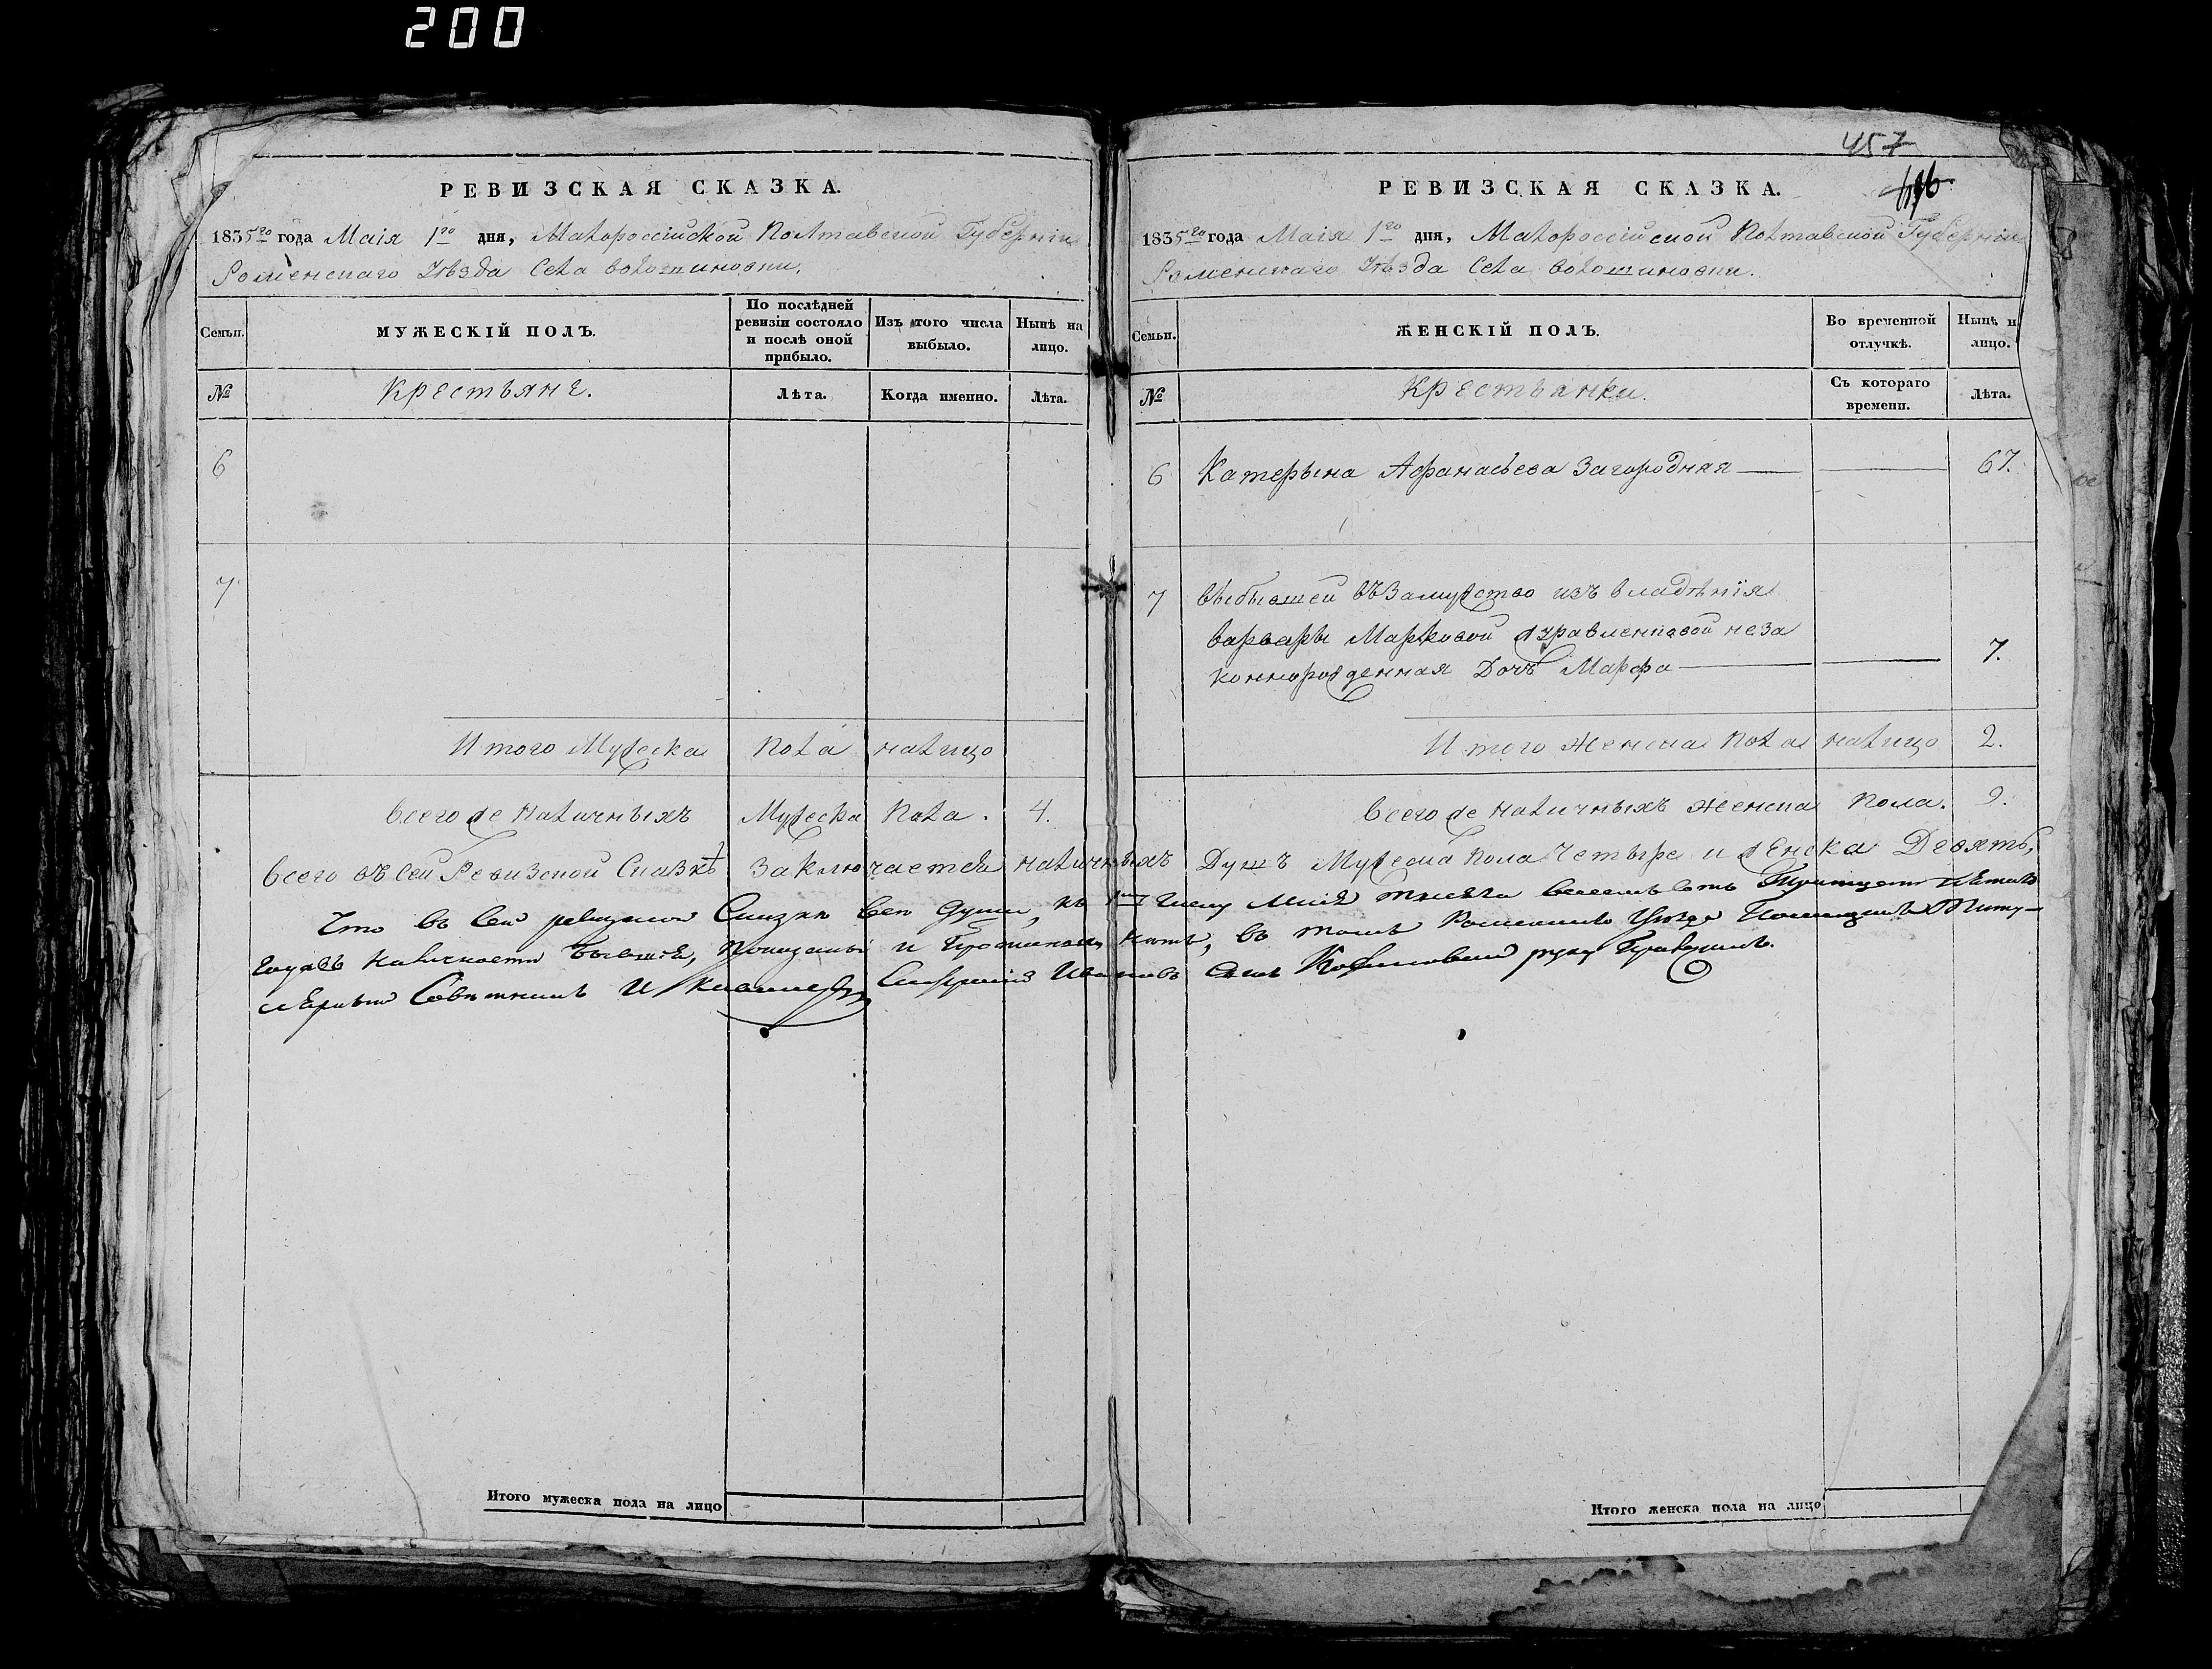 200
РЕВИЗСКАЯ СКАЗКА.
1835го года Маія 1го дня, Малороссійской Полтавской Губерніи
Роменскаго Уѣзда Села Волошиновки.
Семьи.
МУЖЕСКІЙ ПОЛЪ.
По послѣдней ревизіи состояло и послѣ оной прибыло.
Изъ того числа выбыло.
Нынѣ на лицо.
№
Крестьяне.
Лѣта.
Когда именно.
Лѣта.
6
7
Итого Мужеска Пола налицо
Всего же Наличныхъ Мужеска Пола. 4.
457
РЕВИЗСКАЯ СКАЗКА.
1835го года Маія 1го дня, Малороссійской Полтавской Губерніи
Роменскаго Уѣзда Села Волошиновки.
Семьи.
ЖЕНСКІЙ ПОЛЪ.
Во временной отлучкѣ.
Нынѣ н лицо.
№
Крестьянки.
Съ котораго времени.
Лѣта.
6 Катерына Афанасьева Загородная 67.
7 выбывшей въ Замужство изъ владѣнія
Варвары Марковой незаконнорожденная Дочь Марфа 7.
Итого Женска Пола налицо 2.
Всего же наличныхъ женска пола. 9.
Всего въ сей Ревизской Сказкѣ Заключается наличныхъ Душъ Мужеска пола Четыре и женска Девять,
Что въ сей Сказкѣ все души, къ 1му числу Маія тысяча восемьсотъ Тридцать
годавъ наличности бывшія, показаны и въ томъ Роменскаго Уѣзда
Совѣтникъ И руку Приложилъ.
Итого мужеска пола на лицо
Итого женска пола на лицо